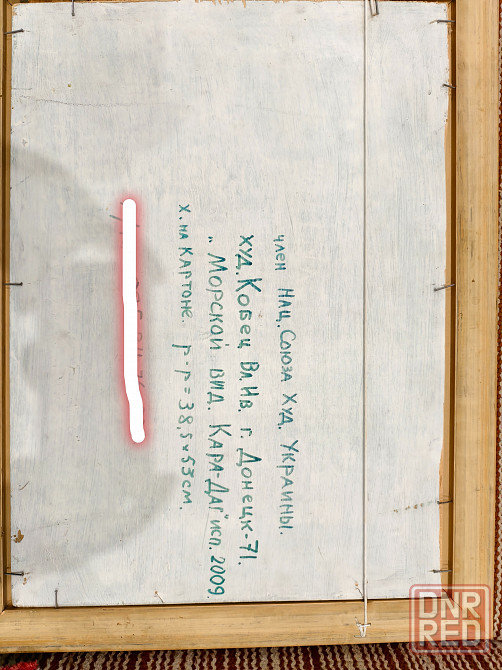 член Нац. Союза Худ. Украины.
худ. Кобец Вл. Ив. г. Донецк-71.
„Морской вид. Кара-Даг" исп. 2009
х. на картоне. р-р = 38,5 x 53 см.
DNR
RED